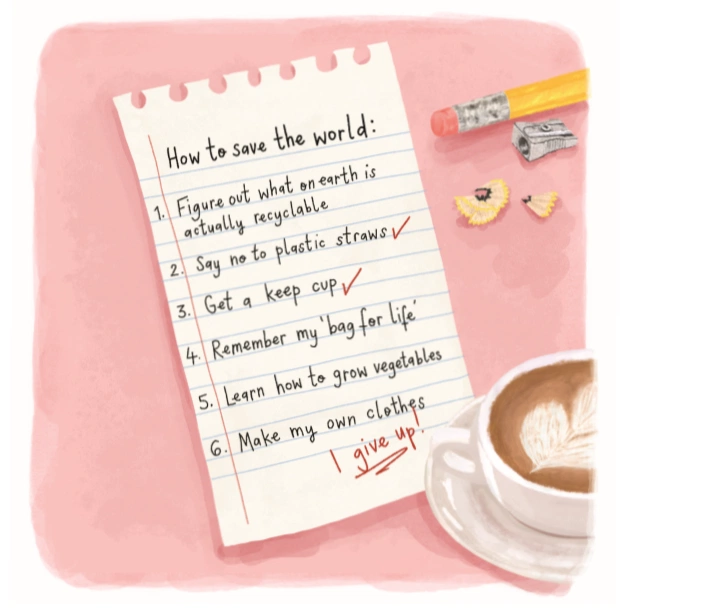 How to save the world:
1. Figure out what on earth is
actually recyclable
2. Say no to plastic straws ✓
3. Get a keep cup ✓
4. Remember my 'bag for life'
5. Learn how to grow vegetables
6. Make my own clothes
I give up!